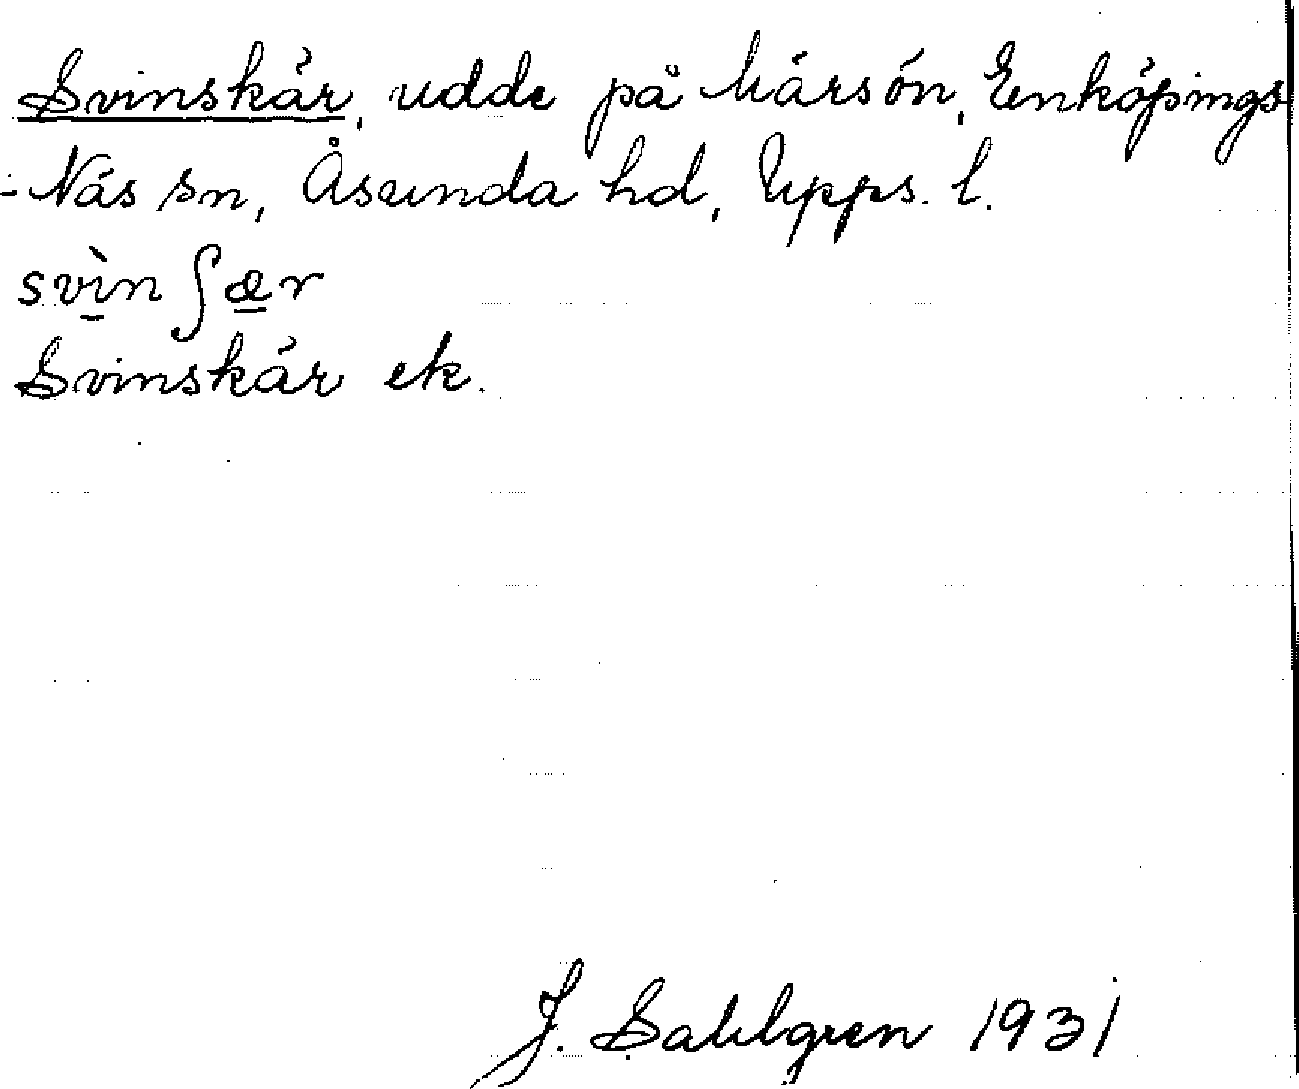 Svinskär, udde på Härsön, Enköpings
-Näs sn, Åsunda hd, Upps. l.
svìn ʃær
Svinskär ek.
J. Sahlgren 1931